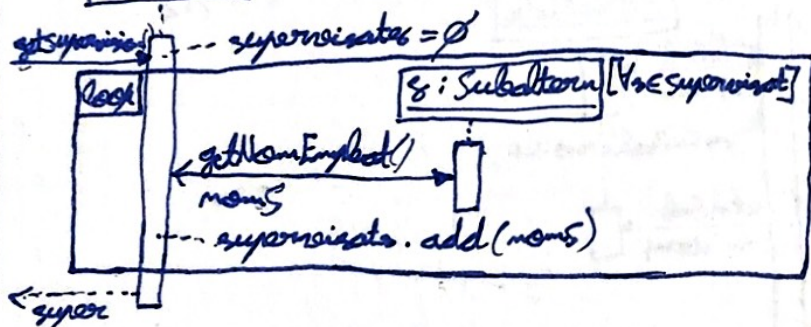 getSupervisio()
supervisats = ∅
loop
s : Subaltern [∀s∈supervisat]
getNomEmpleat()
nomS
supervisats.add(nomS)
super